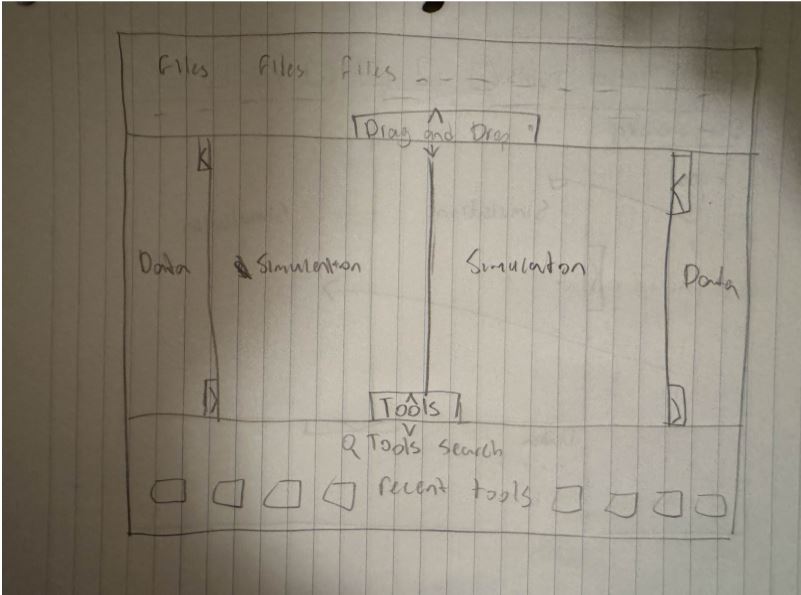 Files Files Files
Drag and Drop
Data Simulation Simulaton Data
Tools
Tools search
recent tools